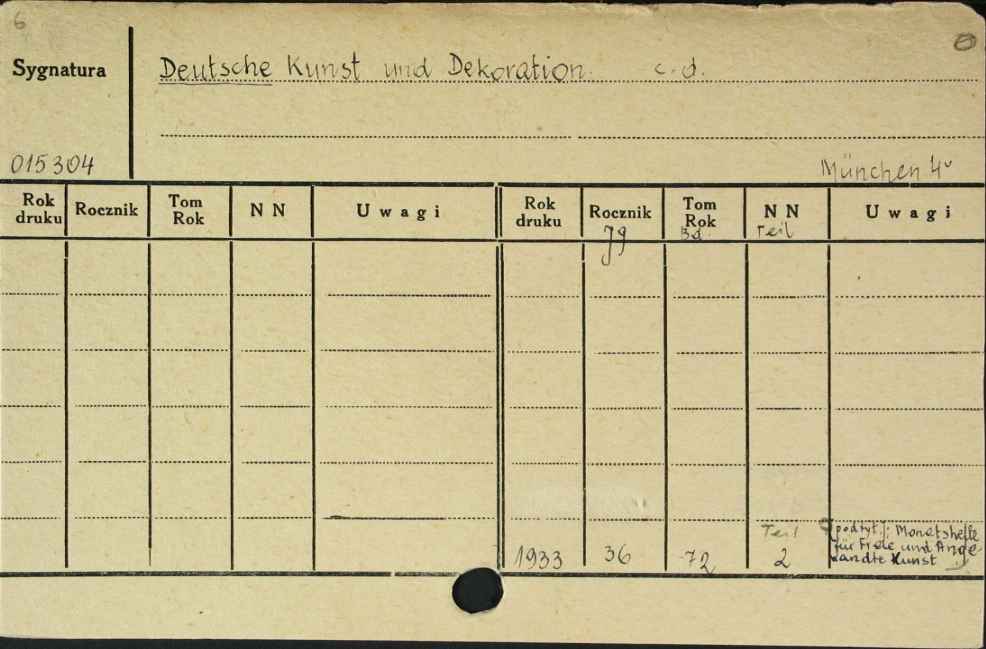 6
Sygnatura Deutsche Kunst und Dekoration. c.d.
015304
München 4°
Rok druku Rocznik Tom Rok NN Uwagi Rok druku Rocznik Tom Rok NN Uwagi
Jg Bd. Teil
1933 36 72 Teil 2 (podtyt.: Monatshefte
für Freie und Ange-
wandte Kunst)